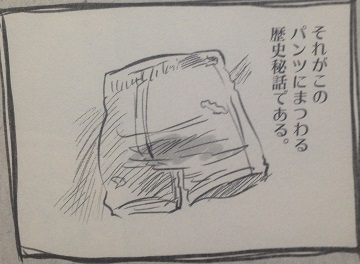 それがこの
パンツにまつわる
歴史秘話である。